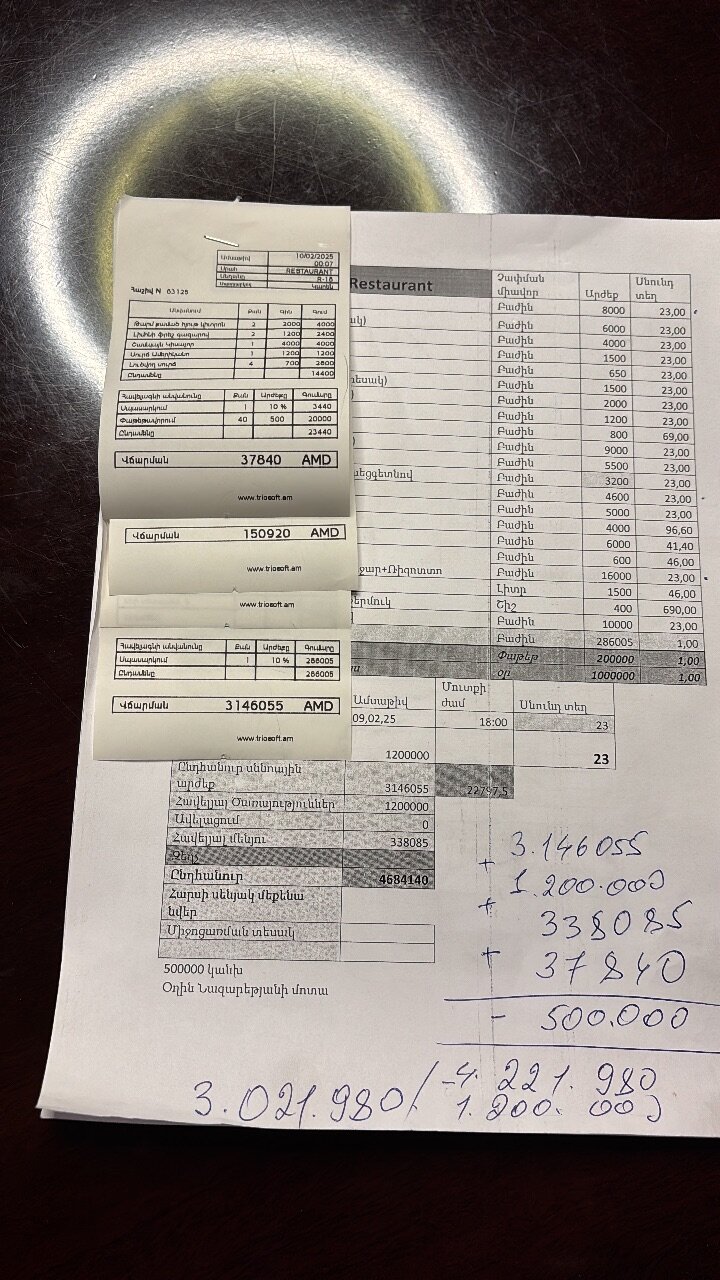 Ամսաթիվ 10/02/2025 00:07
Սրահ RESTAURANT
Սեղանը R-16
Մատուցող Կարեն
Հաշիվ N 83125
Անվանում Քան Գին Գում
Թարմ քամած հյութ կիտրոն 2 2000 4000
Լիմոնի ֆրեշ գազարով 2 1200 2400
Շամպայն Կիսաչոր 1 4000 4000
Սուրճ Ամերիկանո 1 1200 1200
Լուծվող սուրճ 4 700 2800
Ընդամենը 14400
Հավելագնի անվանումը Քան Արժեքը Գումարը
Սպասարկում 1 10 % 3440
Փաթեթավորում 40 500 20000
Ընդամենը 23440
Վճարման 37840 AMD
www.triosoft.am
Վճարման 150920 AMD
www.triosoft.am
www.triosoft.am
Հավելագնի անվանումը Քան Արժեքը Գումարը
Սպասարկում 1 10 % 286005
Ընդամենը 286005
Վճարման 3146055 AMD
www.triosoft.am
Restaurant Չափման միավոր Արժեք Սնունդ տեղ
Բաժին 8000 23,00
ակ) Բաժին 6000 23,00
Բաժին 4000 23,00
Բաժին 1500 23,00
Բաժին 650 23,00
տեսակ) Բաժին 1500 23,00
) Բաժին 2000 23,00
Բաժին 1200 23,00
Բաժին 800 69,00
) Բաժին 9000 23,00
Բաժին 5500 23,00
մեցգետնով Բաժին 3200 23,00
Բաժին 4600 23,00
Բաժին 5000 23,00
Բաժին 4000 96,60
Բաժին 6000 41,40
Բաժին 600 46,00
ջար+Ռիզոտտո Բաժին 16000 23,00
Լիտր 1500 46,00
երմուկ Շիշ 400 690,00
Բաժին 10000 23,00
Բաժին 286005 1,00
Փաթեթ 200000 1,00
օր 1000000 1,00
Ամսաթիվ Մուտքի ժամ Սնունդ տեղ
09,02,25 18:00 23
1200000 23
Ընդհանուր սննային արժեք 3146055 22797,5
Հավելյալ Ծառայություններ 1200000
Ավելացում 0
Հավելյալ մենյու 338085
Զեղչ
Ընդհանուր 4684140
Հարսի սենյակ մեքենա նվեր
Միջոցառման տեսակ
500000 կանխ
Օղին Նազարեթյանի մոտա
3.146055
+ 1.200.000
+ 338085
+ 37840
- 500.000
3.021.980/ -4.221.980
1.200.000